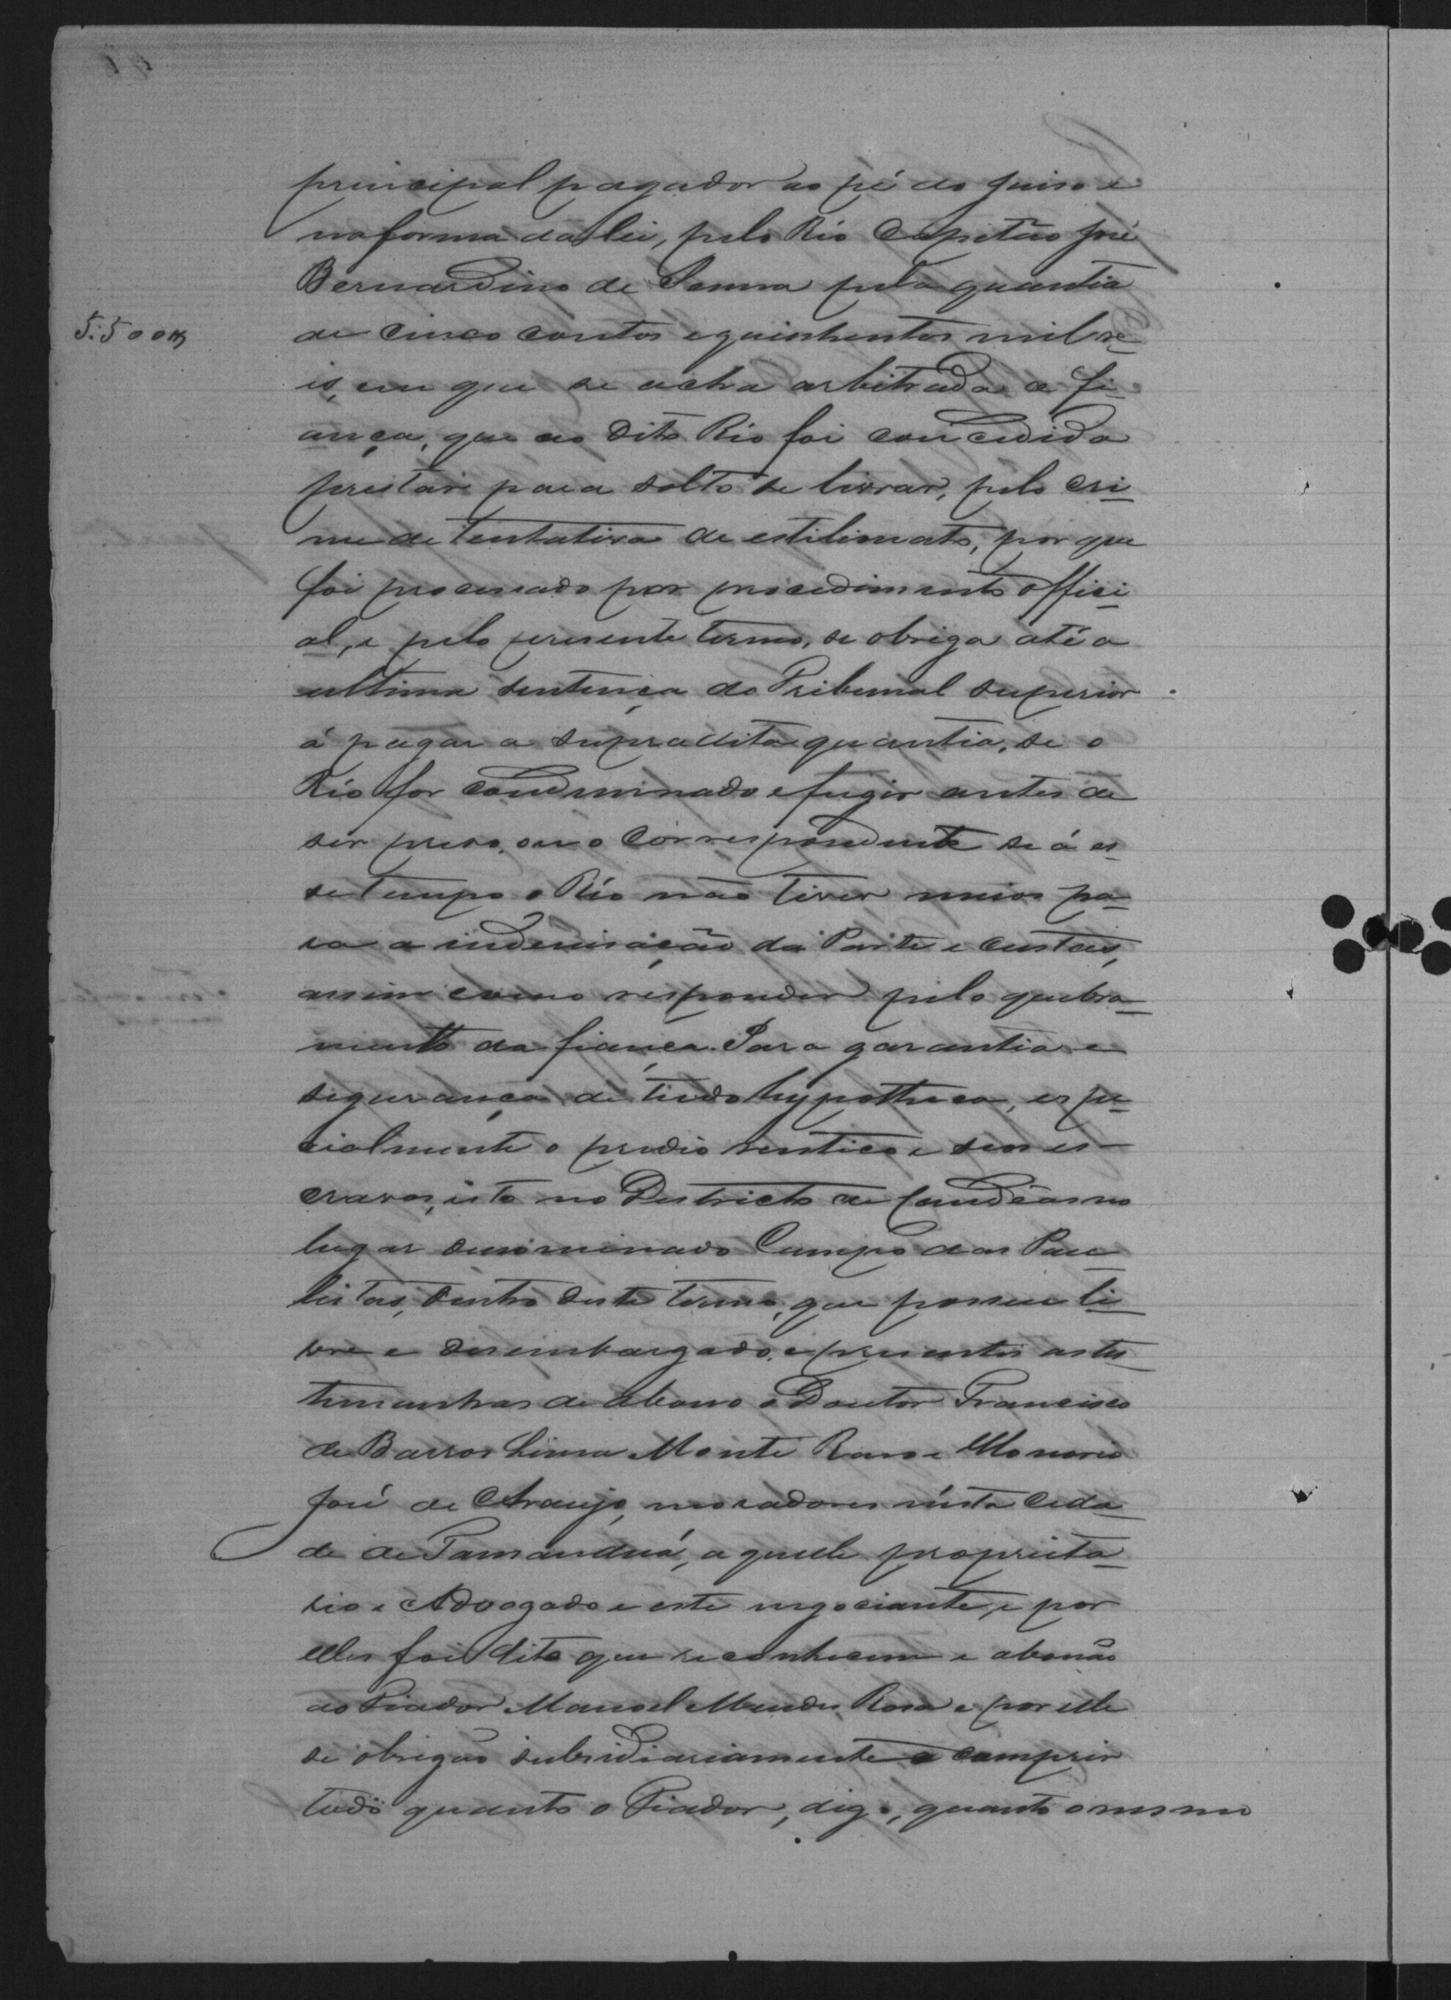 principal pagador ao pé do Juiso e
na forma da lei, pelo Réo Capitão José
Bernardino de Senna pela quantia
5:500$
de cinco contos e quinhentos mil re-
is, em que se acha arbitrada a fi-
ança, que ao dito Réo foi concedida
prestar para solto se livrar, pelo cri-
me de tentativa de estilimato, por que
foi processado por procedimento offici-
al, e pelo presente termo, se obriga até a
ultima sentença do Tribunal superior
á pagar a supradita quantia, se o
Réo for condemnado e fugir antes de
ser preso, ou o correspondente se á es-
se tempo o Réo não tiver meios pa-
ra a indemnisação da Parte e custas,
assim como responder pelo quebra-
mento da fiança. Para garantia e
segurança de tudo hypotheca, espe-
cialmente o predio rustico e seos es-
cravos, isto no Districto de Candêas no
lugar denominado Campo dos Pau-
listas, dentro deste termo, que possue li-
vre e desembargado, e presentes as tes-
temunhas de abono o Doutor Francisco
de Barros Lima Monte Raso e Honorio
José de Araujo, moradores nésta Cida-
de de Tamanduá, aquelle proprieta-
rio e Advogado e este negociante, e por
elles foi dito que reconhecem e abonão
ao Fiador Manoel Mendes Rosa e por elle
se obrigão subsidiariamente a cumprir
tudo quanto o Fiador, digo, quanto o mesmo